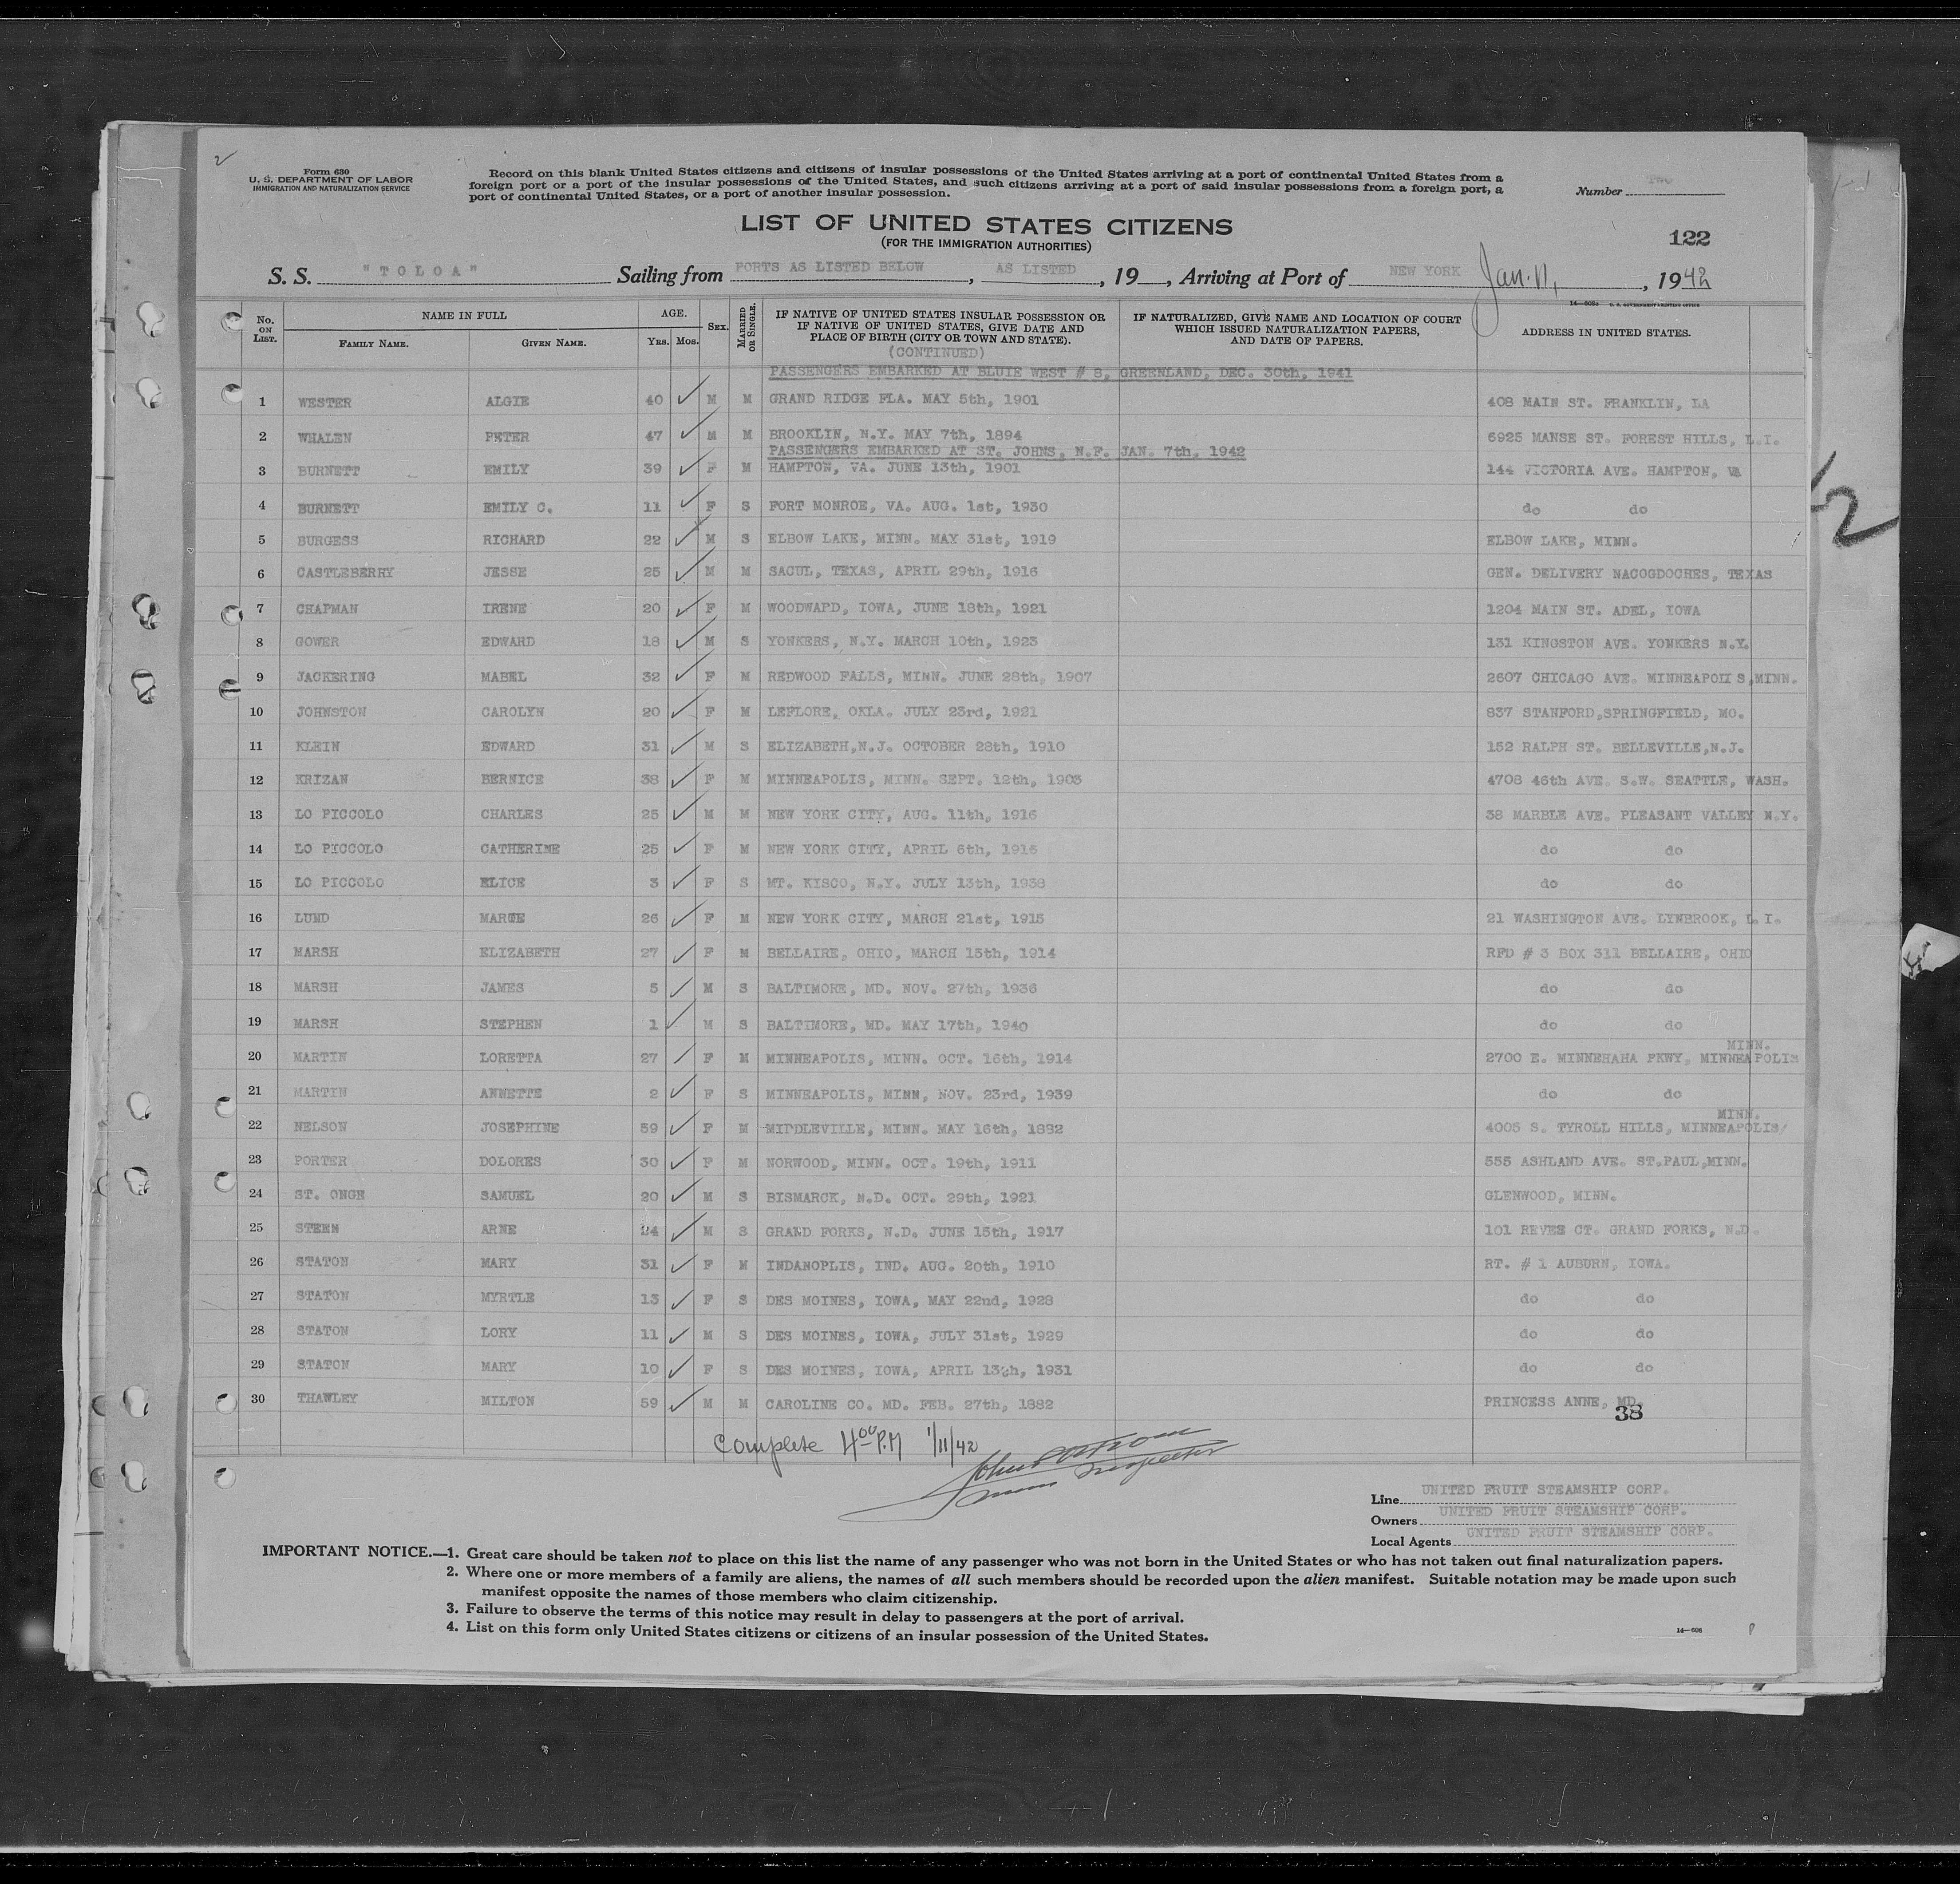 Form 630
U. S. DEPARTMENT OF LABOR
IMMIGRATION AND NATURALIZATION SERVICE
Record on this blank United States citizens and citizens of insular possessions of the United States arriving at a port of continental United States from a
foreign port or a port of the insular possessions of the United States, and such citizens arriving at a port of said insular possessions from a foreign port, a
port of continental United States, or a port of another insular possession.
Number
LIST OF UNITED STATES CITIZENS
(FOR THE IMMIGRATION AUTHORITIES)
122
S. S. "TOLOA" Sailing from PORTS AS LISTED BELOW, AS LISTED, 19__, Arriving at Port of NEW YORK Jan. 11, 1942
14—608a U. S. GOVERNMENT PRINTING OFFICE
No. ON LIST. NAME IN FULL FAMILY NAME. GIVEN NAME. AGE. YRS. MOS. SEX. MARRIED OR SINGLE. IF NATIVE OF UNITED STATES INSULAR POSSESSION OR IF NATIVE OF UNITED STATES, GIVE DATE AND PLACE OF BIRTH (CITY OR TOWN AND STATE). IF NATURALIZED, GIVE NAME AND LOCATION OF COURT WHICH ISSUED NATURALIZATION PAPERS, AND DATE OF PAPERS. ADDRESS IN UNITED STATES.
(CONTINUED)
PASSENGERS EMBARKED AT BLUIE WEST # 8, GREENLAND, DEC. 30th, 1941
1 WESTER ALGIE 40 M M GRAND RIDGE FLA. MAY 5th, 1901 408 MAIN ST. FRANKLIN, LA
2 WHALEN PETER 47 M M BROOKLIN, N.Y. MAY 7th, 1894 6925 MANSE ST. FOREST HILLS, L.I.
PASSENGERS EMBARKED AT ST. JOHNS, N.F. JAN. 7th, 1942
3 BURNETT EMILY 39 F M HAMPTON, VA. JUNE 13th, 1901 144 VICTORIA AVE. HAMPTON, VA
4 BURNETT EMILY C. 11 F S FORT MONROE, VA. AUG. 1st, 1930 do do
5 BURGESS RICHARD 22 M S ELBOW LAKE, MINN. MAY 31st, 1919 ELBOW LAKE, MINN.
6 CASTLEBERRY JESSE 25 M M SACUL, TEXAS, APRIL 29th, 1916 GEN. DELIVERY NACOGDOCHES, TEXAS
7 CHAPMAN IRENE 20 F M WOODWARD, IOWA, JUNE 18th, 1921 1204 MAIN ST. ADEL, IOWA
8 GOWER EDWARD 18 M S YONKERS, N.Y. MARCH 10th, 1923 131 KINGSTON AVE. YONKERS N.Y.
9 JACKERING MABEL 32 F M REDWOOD FALLS, MINN. JUNE 28th, 1907 2607 CHICAGO AVE. MINNEAPOLIS,MINN.
10 JOHNSTON CAROLYN 20 F M LEFLORE, OKLA. JULY 23rd, 1921 837 STANFORD,SPRINGFIELD, MO.
11 KLEIN EDWARD 31 M S ELIZABETH,N.J. OCTOBER 28th, 1910 152 RALPH ST. BELLEVILLE,N.J.
12 KRIZAN BERNICE 38 F M MINNEAPOLIS, MINN. SEPT. 12th, 1903 4708 46th AVE. S.W. SEATTLE, WASH.
13 LO PICCOLO CHARLES 25 M M NEW YORK CITY, AUG. 11th, 1916 38 MARBLE AVE. PLEASANT VALLEY N.Y.
14 LO PICCOLO CATHERINE 25 F M NEW YORK CITY, APRIL 6th, 1916 do do
15 LO PICCOLO ELICE 3 F S MT. KISCO, N.Y. JULY 13th, 1938 do do
16 LUND MARGE 26 F M NEW YORK CITY, MARCH 21st, 1915 21 WASHINGTON AVE. LYNBROOK, L.I.
17 MARSH ELIZABETH 27 F M BELLAIRE, OHIO, MARCH 15th, 1914 RFD # 3 BOX 311 BELLAIRE, OHIO
18 MARSH JAMES 5 M S BALTIMORE, MD. NOV. 27th, 1936 do do
19 MARSH STEPHEN 1 M S BALTIMORE, MD. MAY 17th, 1940 do do
20 MARTIN LORETTA 27 F M MINNEAPOLIS, MINN. OCT. 16th, 1914 2700 E. MINNEHAHA PKWY, MINNEAPOLIS MINN.
21 MARTIN ANNETTE 2 F S MINNEAPOLIS, MINN, NOV. 23rd, 1939 do do
22 NELSON JOSEPHINE 59 F M MIDDLEVILLE, MINN. MAY 16th, 1882 4005 S. TYROLL HILLS, MINNEAPOLIS/ MINN.
23 PORTER DOLORES 30 F M NORWOOD, MINN. OCT. 19th, 1911 555 ASHLAND AVE. ST.PAUL,MINN.
24 ST. ONGE SAMUEL 20 M S BISMARCK, N.D. OCT. 29th, 1921 GLENWOOD, MINN.
25 STEEN ARNE 24 M S GRAND FORKS, N.D. JUNE 15th, 1917 101 REVES CT. GRAND FORKS, N.D.
26 STATON MARY 31 F M INDANOPLIS, IND. AUG. 20th, 1910 RT. # 1 AUBURN, IOWA.
27 STATON MYRTLE 13 F S DES MOINES, IOWA, MAY 22nd, 1928 do do
28 STATON LORY 11 M S DES MOINES, IOWA, JULY 31st, 1929 do do
29 STATON MARY 10 F S DES MOINES, IOWA, APRIL 13th, 1931 do do
30 THAWLEY MILTON 59 M M CAROLINE CO. MD. FEB. 27th, 1882 PRINCESS ANNE, MD.
38
Complete 4:00 P.M 1/11/42
Inspector
Line UNITED FRUIT STEAMSHIP CORP.
Owners UNITED FRUIT STEAMSHIP CORP.
Local Agents UNITED FRUIT STEAMSHIP CORP.
IMPORTANT NOTICE.—1. Great care should be taken not to place on this list the name of any passenger who was not born in the United States or who has not taken out final naturalization papers.
2. Where one or more members of a family are aliens, the names of all such members should be recorded upon the alien manifest. Suitable notation may be made upon such
manifest opposite the names of those members who claim citizenship.
3. Failure to observe the terms of this notice may result in delay to passengers at the port of arrival.
4. List on this form only United States citizens or citizens of an insular possession of the United States.
14—608